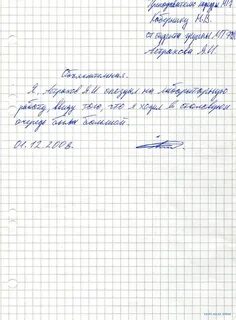 Преподавателю кафедры
Каборнику Н.В.
от студента группы
Абрамова А.И.
Объяснительная.
Я, Абрамов А.И. опоздал на лабораторную
работу, ввиду того, что я ходил в столовую и
очередь была большой.
01.12.2008.